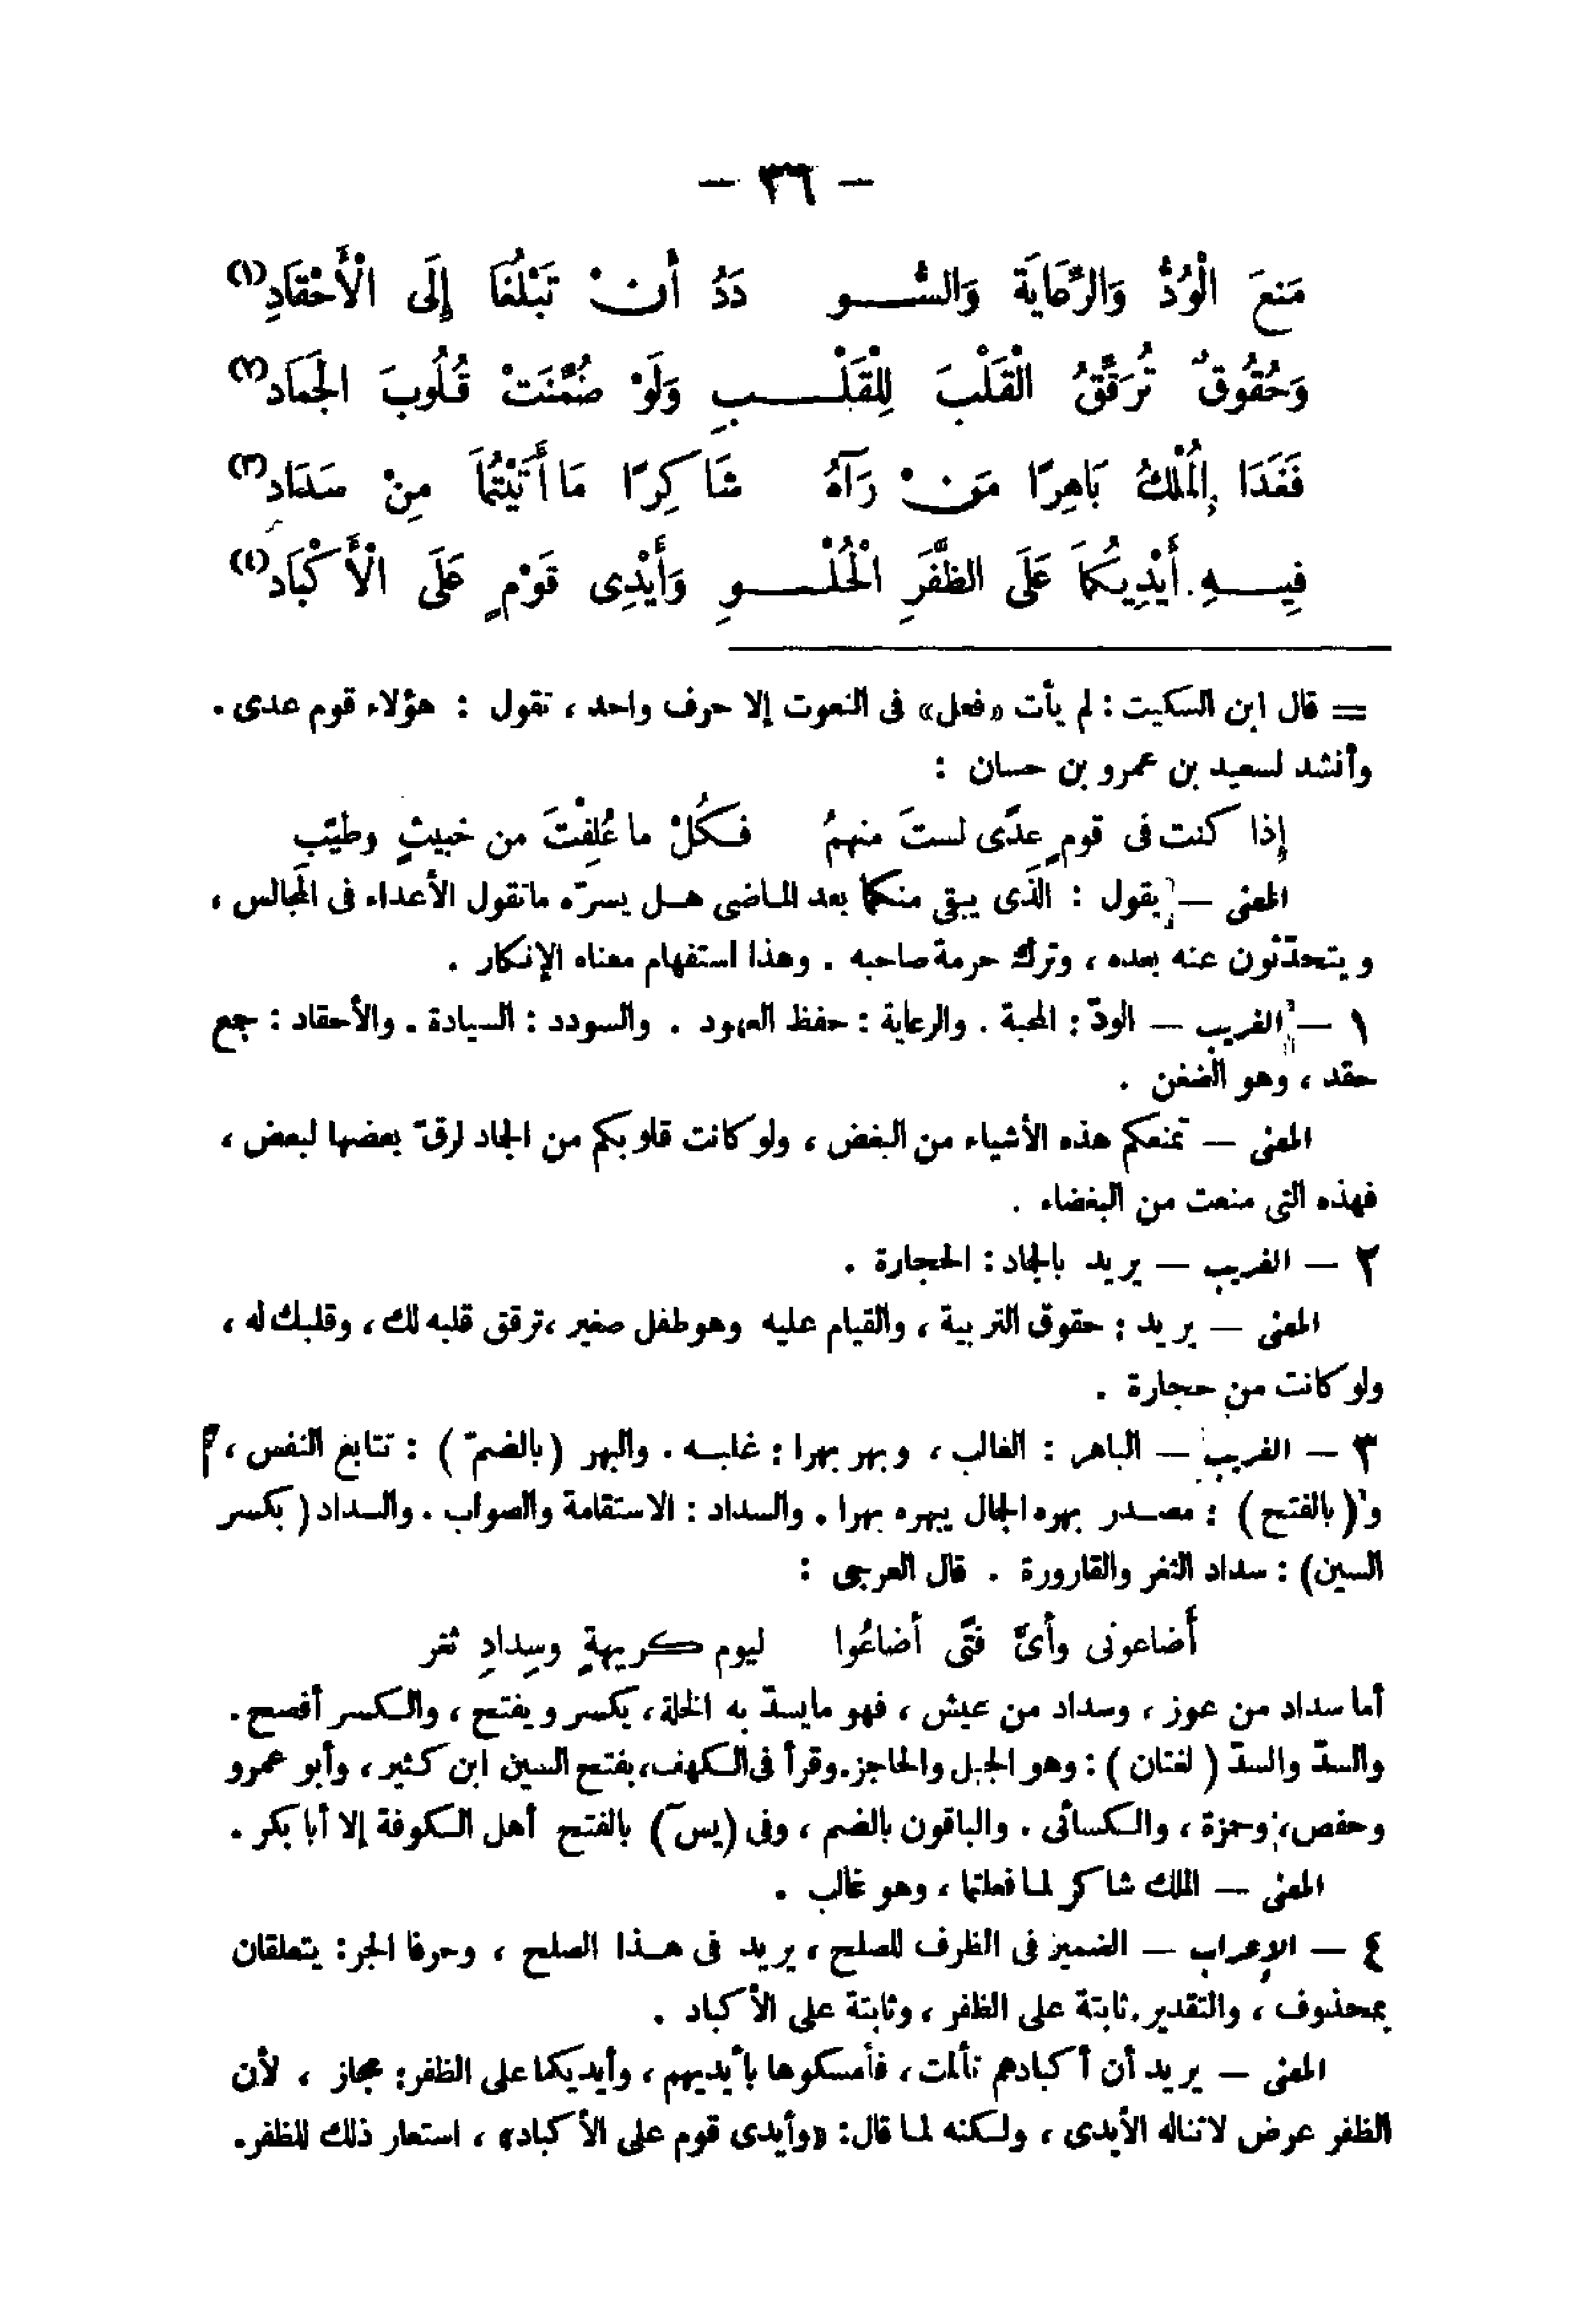 — ٣٦ —
مَنعَ الْوُدُّ وَالرِّعَايَةَ وَالسُّـــو دَدُ أَنْ تَبْلُغَا إِلَى الْأَحْقَادِ(١)
وَحُقُوقٌ تُرَقِّقُ الْقَلْبَ لِلْقَلْـــبِ وَلَوْ ضُمِّنَتْ قُلُوبَ الجَمَادِ(٢)
فَغَدَا الْمُلْكُ بَاهِرًا مَنْ رَآهُ شَاكِرًا مَا أَتَيْتُمَا مِنْ سَدَادِ(٣)
فِيــهِ أَيْدِيكُمَا عَلَى الظَّفَرِ الْحُلْـــوِ وَأَيْدِى قَوْمٍ عَلَى الْأَكْبَادِ(٤)
= قال ابن السكيت : لم يأت «فعل» فى النعوت إلا حرف واحد ، تقول : هؤلاء قوم عدى .
وأنشد لسعيد بن عمرو بن حسان :
إذا كنت فى قومٍ عِدًى لستَ منهمُ فـكُلْ ما عُلِفْتَ من خبيثٍ وطيّبِ
المعنى — يقول : الذى يبقى منكما بعد الماضى هـل يسرّه ماتقول الأعداء فى المجالس ،
ويتحدّثون عنه بعده ، وترك حرمة صاحبه . وهذا استفهام معناه الإنكار .
١ — الغريب — الودّ : المحبة . والرعاية : حفظ العهود . والسودد : السيادة . والأحقاد : جمع
حقد ، وهو الضغن .
المعنى — تمنعكم هذه الأشياء من البغض ، ولو كانت قلوبكم من الجماد لرقّ بعضها لبعض ،
فهذه التى منعت من البغضاء .
٢ — الغريب — يريد بالجماد : الحجارة .
المعنى — يريد : حقوق التربية ، والقيام عليه وهو طفل صغير ، ترقق قلبه لك ، وقلبك له ،
ولو كانت من حجارة .
٣ — الغريب — الباهر : الغالب ، وبهر بهرا : غلبـه . والبهر (بالضمّ) : تتابع النفس ،
و (بالفتح) : مصـدر بهره الحمال يبهره بهرا . والسداد : الاستقامة والصواب . والسـداد ( بكسر
السين) : سداد الثغر والقارورة . قال العرجى :
أَضاعونى وأىَّ فتًى أضاعُوا ليوم كريهةٍ وسِدادِ ثغر
أما سداد من عوز ، وسداد من عيش ، فهو مايسدّ به الخلة ، يكسر ويفتح ، والـكسر أفصح .
والسدّ والسدّ ( لغتان ) : وهو الجبل والحاجز . وقرأ فى الـكهف ، بفتح السين ابن كثير ، وأبو عمرو
وحفص ، وحمزة ، والـكسائى . والباقون بالضم ، وفى (يسٓ) بالفتح أهل الـكوفة إلا أبا بكر .
المعنى — الملك شاكر لما فعلتما ، وهو غالب .
٤ — الإعراب — الضمير فى الظرف للصلح ، يريد فى هـذا الصلح ، وحرفا الجر : يتعلقان
بمحذوف ، والتقدير . ثابتة على الظفر ، وثابتة على الأكباد .
المعنى — يريد أن أكبادهم تألمت ، فأمسكوها بأيديهم ، وأيديكما على الظفر : مجاز ، لأن
الظفر عرض لاتناله الأيدى ، ولـكنه لما قال : «وأيدى قوم على الأكباد» ، استعار ذلك للظفر .